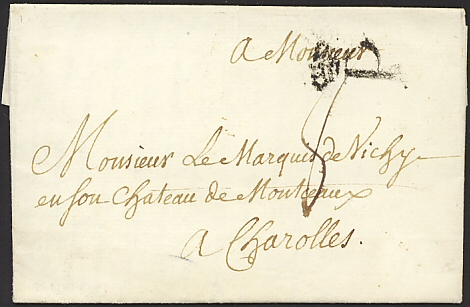 A Monsieur
Monsieur Le Marquis de Vichy
en son chateau de Montceaux
a Charolles.